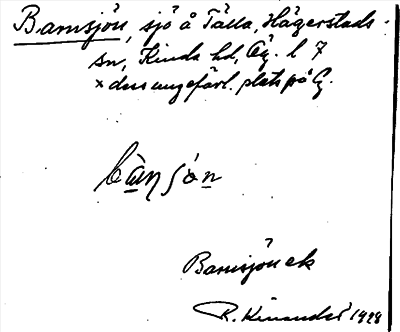 Barnsjön, sjö å Tälla, Hägerstads
sn, Kinda hd, Ög. l 7
x dess ungefärl. plats på G.
Barnsjön ek
R. Kinander 1928